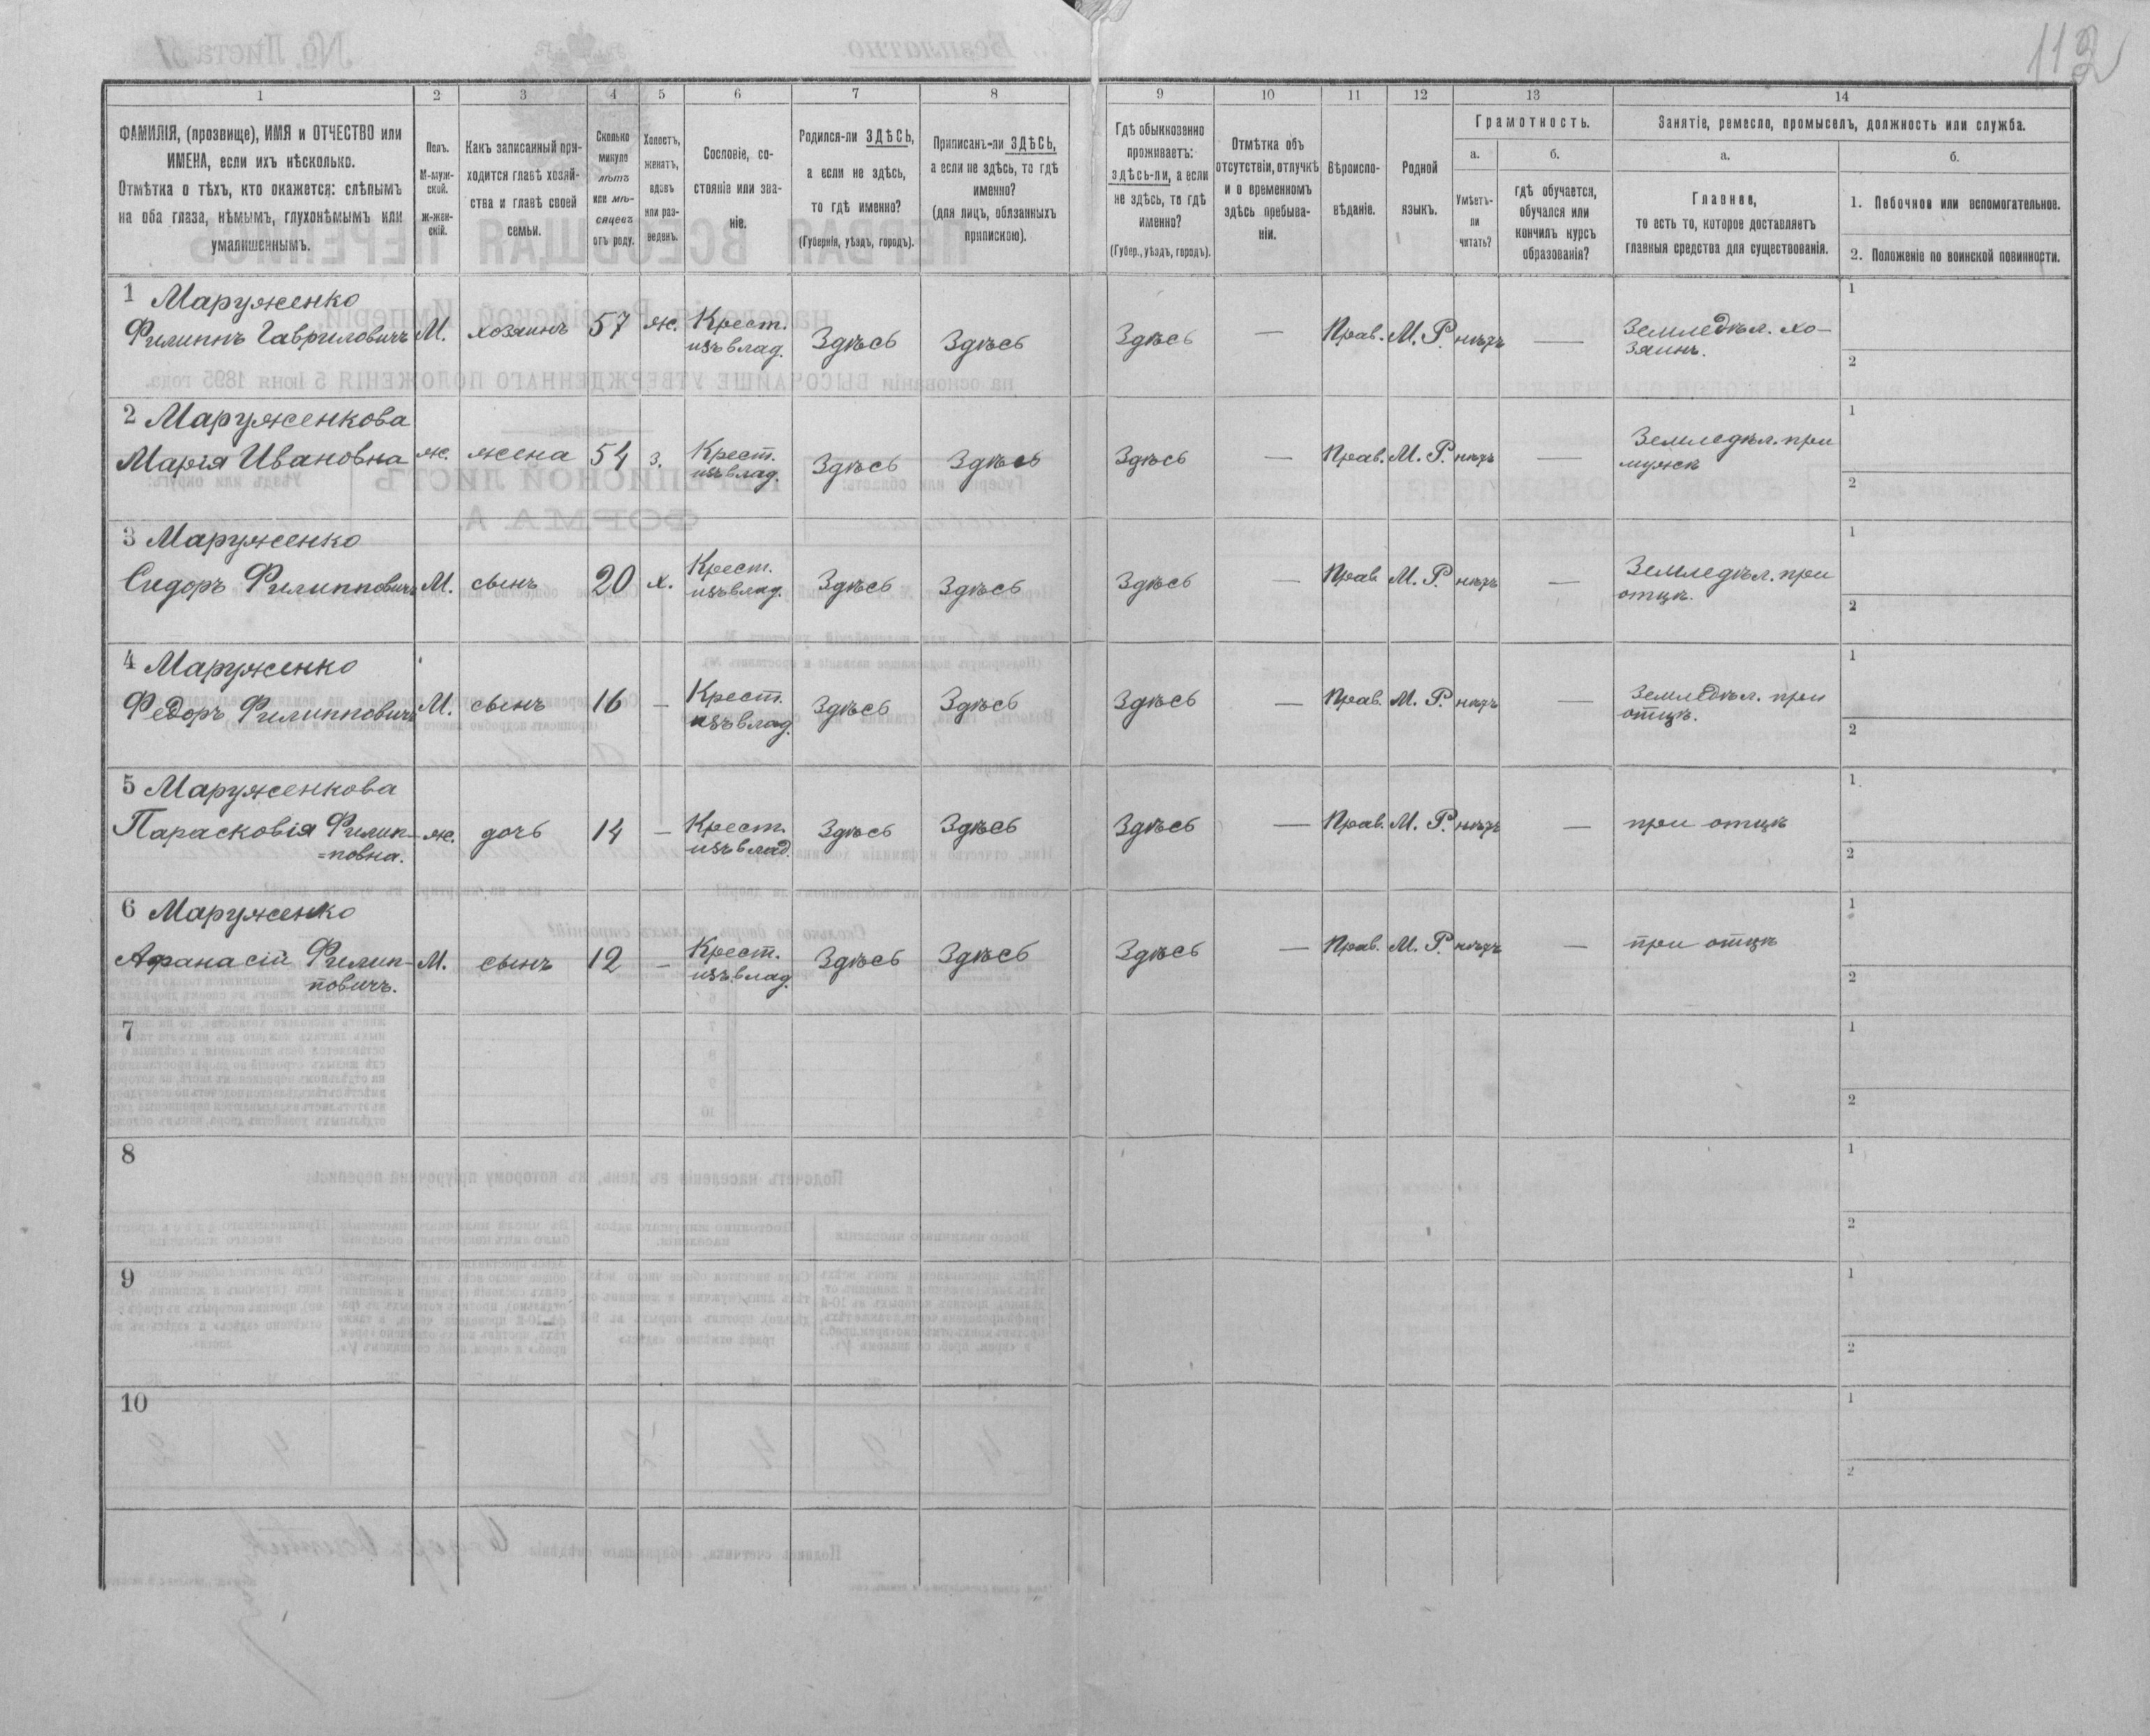 112
1 2 3 4 5 6 7 8 9 10 11 12 13 14
ФАМИЛІЯ, (прозвище), ИМЯ и ОТЧЕСТВО или
ИМЕНА, если ихъ нѣсколько.
Отмѣтка о тѣхъ, кто окажется: слѣпымъ
на оба глаза, нѣмымъ, глухонѣмымъ или
умалишеннымъ.
Полъ.
М-муж-
ской.
ж-жен-
скій.
Какъ записанный при-
ходится главѣ хозяй-
ства и главѣ своей
семьи.
Сколько
минуло
лѣтъ
или мѣ-
сяцевъ
отъ роду.
Холостъ,
женатъ,
вдовъ
или раз-
веденъ.
Сословіе, со-
стояніе или зва-
ніе.
Родился-ли ЗДѢСЬ,
а если не здѣсь,
то гдѣ именно?
(Губернія, уѣздъ, городъ).
Приписанъ-ли ЗДѢСЬ,
а если не здѣсь, то гдѣ
именно?
(для лицъ, обязанныхъ
припискою).
Гдѣ обыкновенно
проживаетъ:
здѣсь-ли, а если
не здѣсь, то гдѣ
именно?
(Губер., уѣздъ, городъ).
Отмѣтка объ
отсутствіи, отлучкѣ
и о временномъ
здѣсь пребыва-
ніи.
Вѣроиспо-
вѣданіе.
Родной
языкъ.
Грамотность.
а.
Умѣетъ-
ли
читать?
б.
гдѣ обучается,
обучался или
кончилъ курсъ
образованія?
Занятіе, ремесло, промыселъ, должность или служба.
а.
Главное,
то есть то, которое доставляетъ
главныя средства для существованія.
б.
1. Побочное или вспомогательное.
2. Положеніе по воинской повинности.
1 Маруженко
Филиппъ Гавриловичъ М. хозяинъ 57 ж. Крест.
изъ влад. Здѣсь Здѣсь Здѣсь — Прав. М. Р. нѣтъ — Земледѣл. хо-
зяинъ.
1
2
2 Маруженкова
Марія Ивановна ж. жена 54 з. Крест.
изъ влад. Здѣсь Здѣсь Здѣсь — Прав. М. Р. нѣтъ — Земледѣл. при
мужѣ
1
2
3 Маруженко
Сидоръ Филипповичъ М. сынъ 20 х. Крест.
изъ влад. Здѣсь Здѣсь Здѣсь — Прав. М. Р. нѣтъ — Земледѣл. при
отцѣ.
1
2
4 Маруженко
Федоръ Филипповичъ М. сынъ 16 — Крест.
изъ влад. Здѣсь Здѣсь Здѣсь — Прав. М. Р. нѣтъ — Земледѣл. при
отцѣ.
1
2
5 Маруженкова
Парасковія Филип- ж. дочь 14 — Крест.
=повна. изъ влад. Здѣсь Здѣсь Здѣсь — Прав. М. Р. нѣтъ — при отцѣ
1
2
6 Маруженко
Афанасій Филип- М. сынъ 12 — Крест.
повичъ. изъ влад. Здѣсь Здѣсь Здѣсь — Прав. М. Р. нѣтъ — при отцѣ
1
2
7
1
2
8
1
2
9
1
2
10
1
2